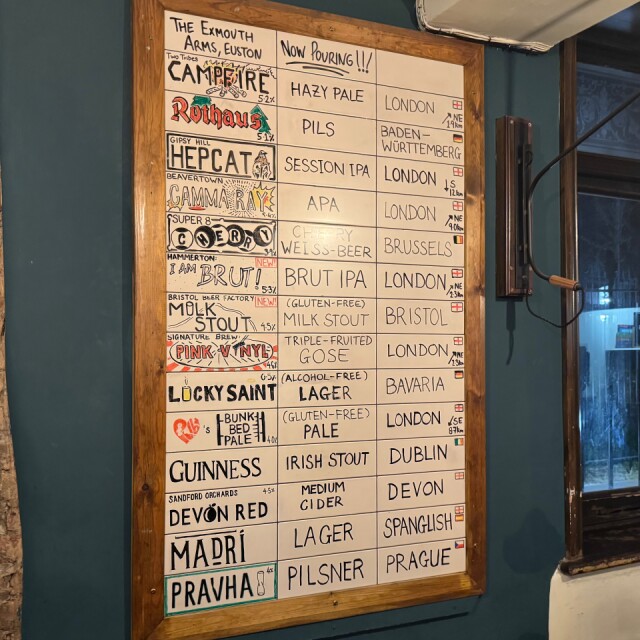 THE EXMOUTH
ARMS, EUSTON
NOW POURING!!!
TWO TRIBES
CAMPFIRE
5.2%
HAZY PALE
LONDON
NE
Rothaus
5.1%
PILS
BADEN-
WÜRTTEMBERG
GIPSY HILL
HEPCAT
SESSION IPA
LONDON
S
12km
BEAVERTOWN
GAMMA RAY
APA
LONDON
NE
SUPER 8
CHERRY
CHERRY
WEISS-BEER
BRUSSELS
HAMMERTON:
NEW!
I AM BRUT!
5.3%
BRUT IPA
LONDON
NE
BRISTOL BEER FACTORY
NEW!
MILK
STOUT
4.5%
(GLUTEN-FREE)
MILK STOUT
BRISTOL
SIGNATURE BREW:
PINK VINYL
TRIPLE-FRUITED
GOSE
LONDON
NE
0.5%
LUCKY SAINT
(ALCOHOL-FREE)
LAGER
BAVARIA
'S
BUNK
BED
PALE
(GLUTEN-FREE)
PALE
LONDON
SE
GUINNESS
IRISH STOUT
DUBLIN
SANDFORD ORCHARDS
4.5%
DEVON RED
MEDIUM
CIDER
DEVON
MADRÍ
LAGER
SPANGLISH
PRAVHA
4%
PILSNER
PRAGUE